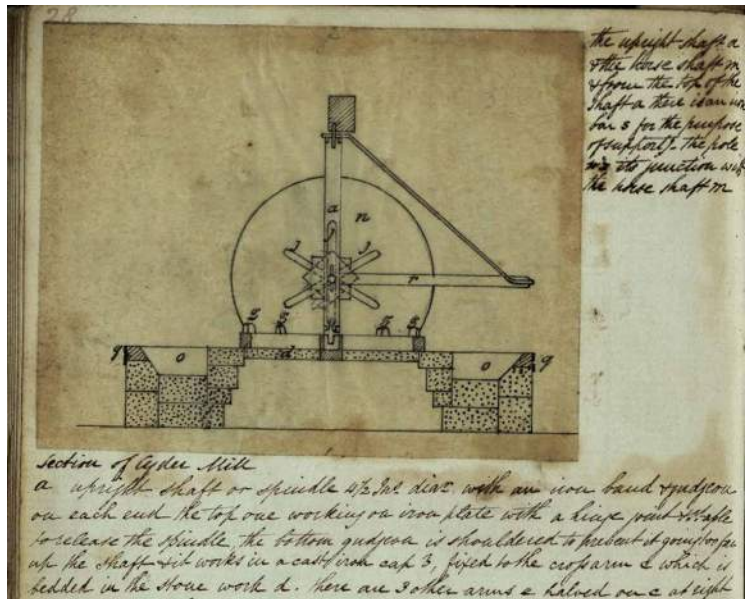 28
the upright shaft a
& the horse shaft m
& from the top of the
shaft a there is an iron
bar s for the purpose
of supports. the pole
its junction with
the horse shaft m
a
n
r
d
o
o
q
q
Section of Cyder Mill
a upright shaft or spindle 4½ Ins diar. with an iron band & gudgeon
on each end the top one working on iron plate with a hinge joint &
to release the spindle, the bottom gudgeon is shouldered to prevent it going too far
up the shaft & it works in a cast iron cap 3, fixed to the cross arm c which is
bedded in the stone work d. there are 3 other arms e halved on c at right